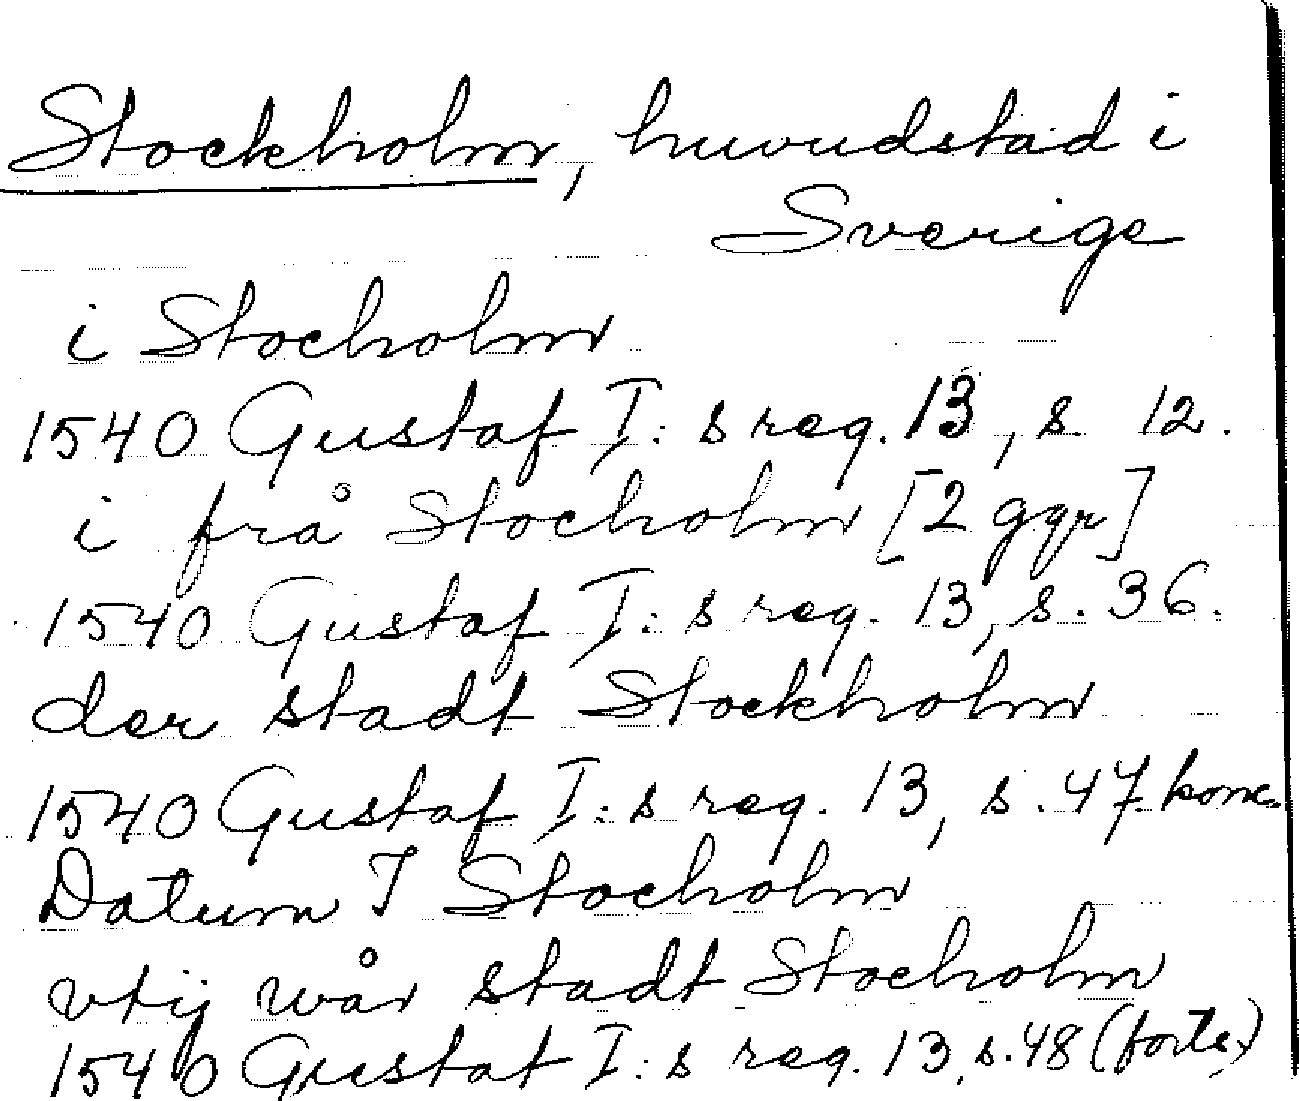 Stockholm, huvudstad i
Sverige
i Stocholm
1540 Gustaf I:s reg. 13, s. 12.
i frå Stocholm [2 ggr]
1540 Gustaf I:s reg. 13, s. 36.
der stadt Stockholm
1540 Gustaf I:s reg. 13, s. 47 konc.
Datum I Stocholm
vtij wår stadt Stocholm
1540 Gustaf I:s reg. 13, s. 48 (forts.)